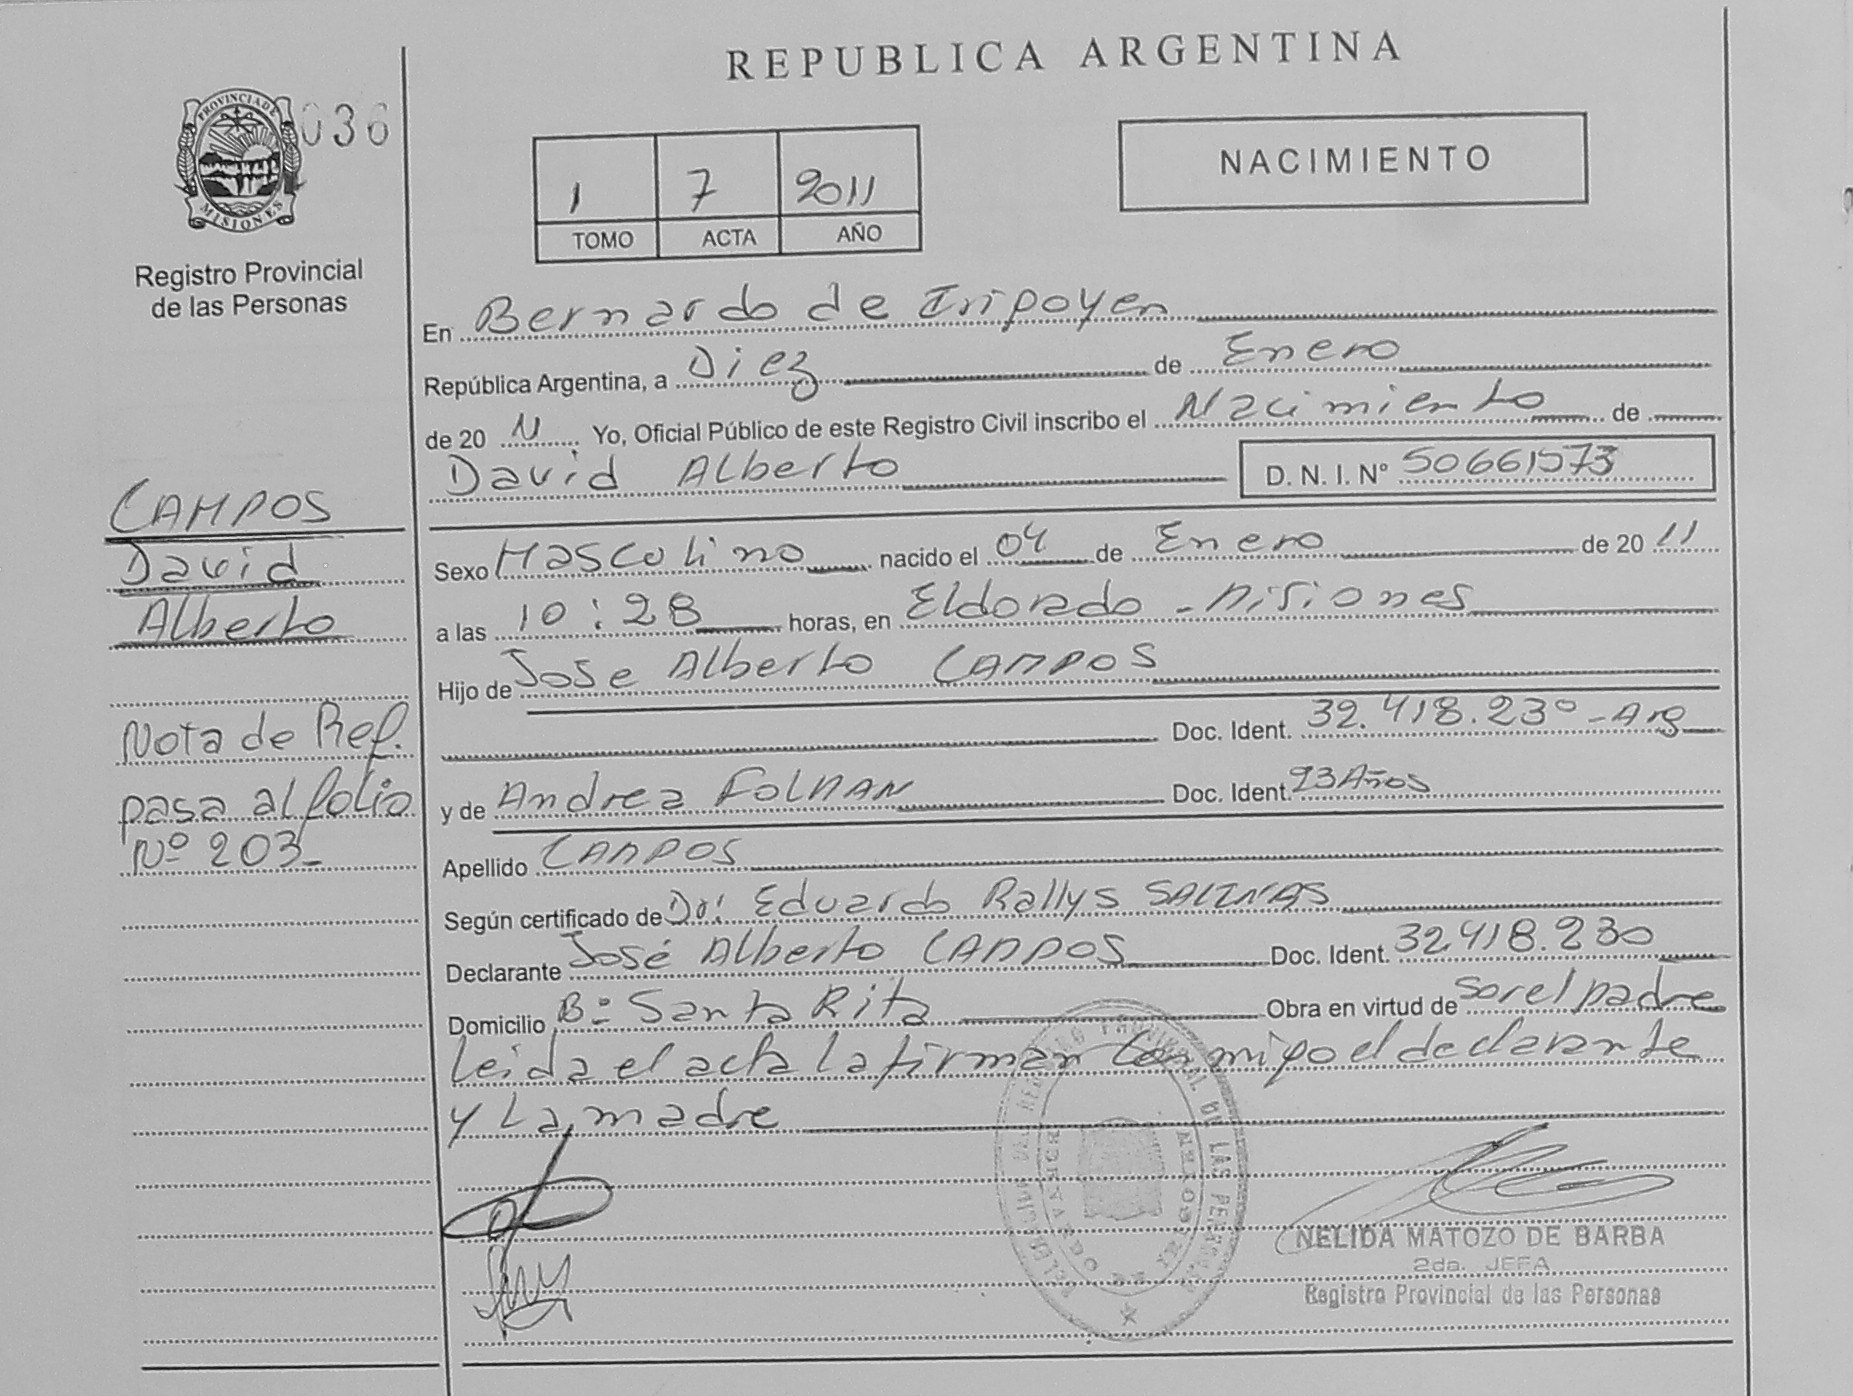 REPUBLICA ARGENTINA
PROVINCIA DE
MISIONES
036
Registro Provincial
de las Personas
1 7 2011
TOMO ACTA AÑO
NACIMIENTO
En Bernardo de Iripoyen
República Argentina, a Diez de Enero
de 20 11 Yo, Oficial Público de este Registro Civil inscribo el Nacimiento de
David Alberto D. N. I. Nº 50661573
CAMPOS
David
Alberto
Nota de Ref.
pasa al folio
Nº 203
Sexo Masculino nacido el 04 de Enero de 20 11
a las 10:28 horas, en Eldorado - Misiones
Hijo de Jose Alberto CAMPOS
Doc. Ident. 32.418.230 - Arg
y de Andrea FOLMAN Doc. Ident. 23 Años
Apellido CAMPOS
Según certificado de Dr: Eduardo Rallys SALINAS
Declarante José Alberto CAMPOS Doc. Ident. 32.418.230
Domicilio Bº Santa Rita Obra en virtud de ser el padre
Leida el acta la firman conmigo el declarante
y La madre
NELIDA MATOZO DE BARBA
2da. JEFA
Registro Provincial de las Personas